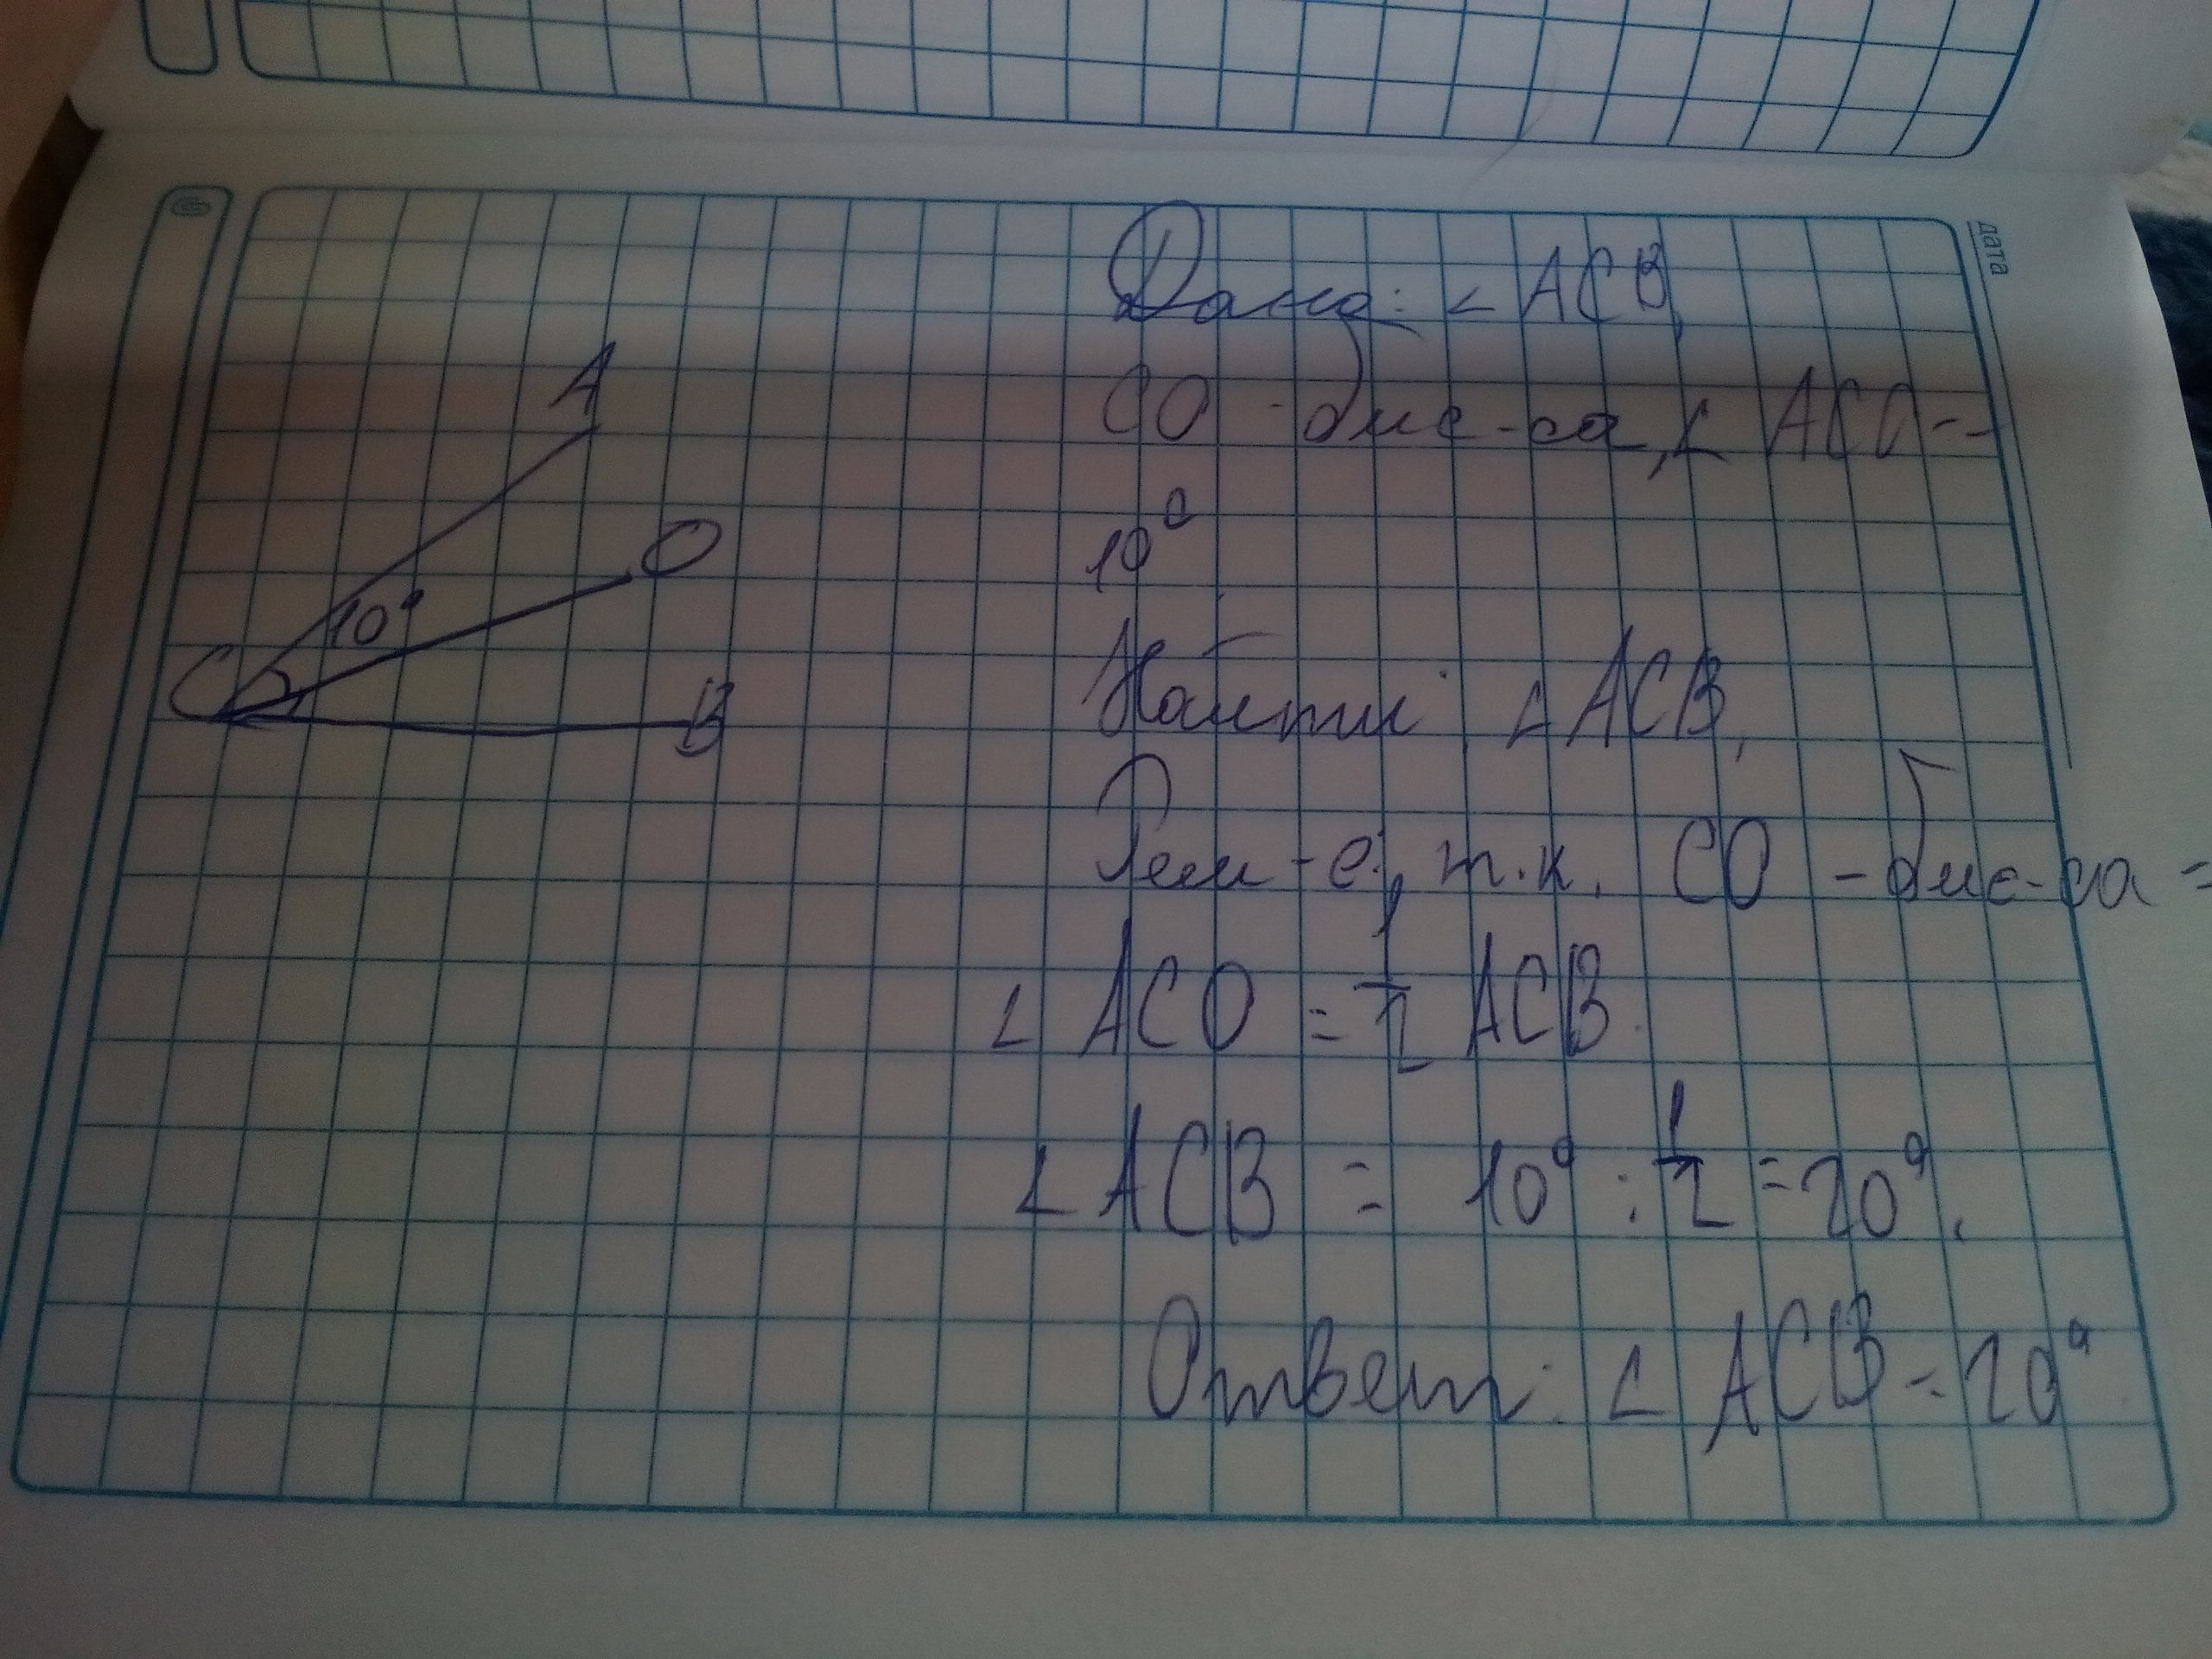 дата
Дано: ∠ACB,
CO - бис-са, ∠ACO =
10°
Найти: ∠ACB,
Реш-е: т.к. CO - бис-са =
∠ACO = 1/2 ACB.
∠ACB = 10° : 1/2 = 20°.
Ответ: ∠ACB = 20°
A
O
10°
C
B